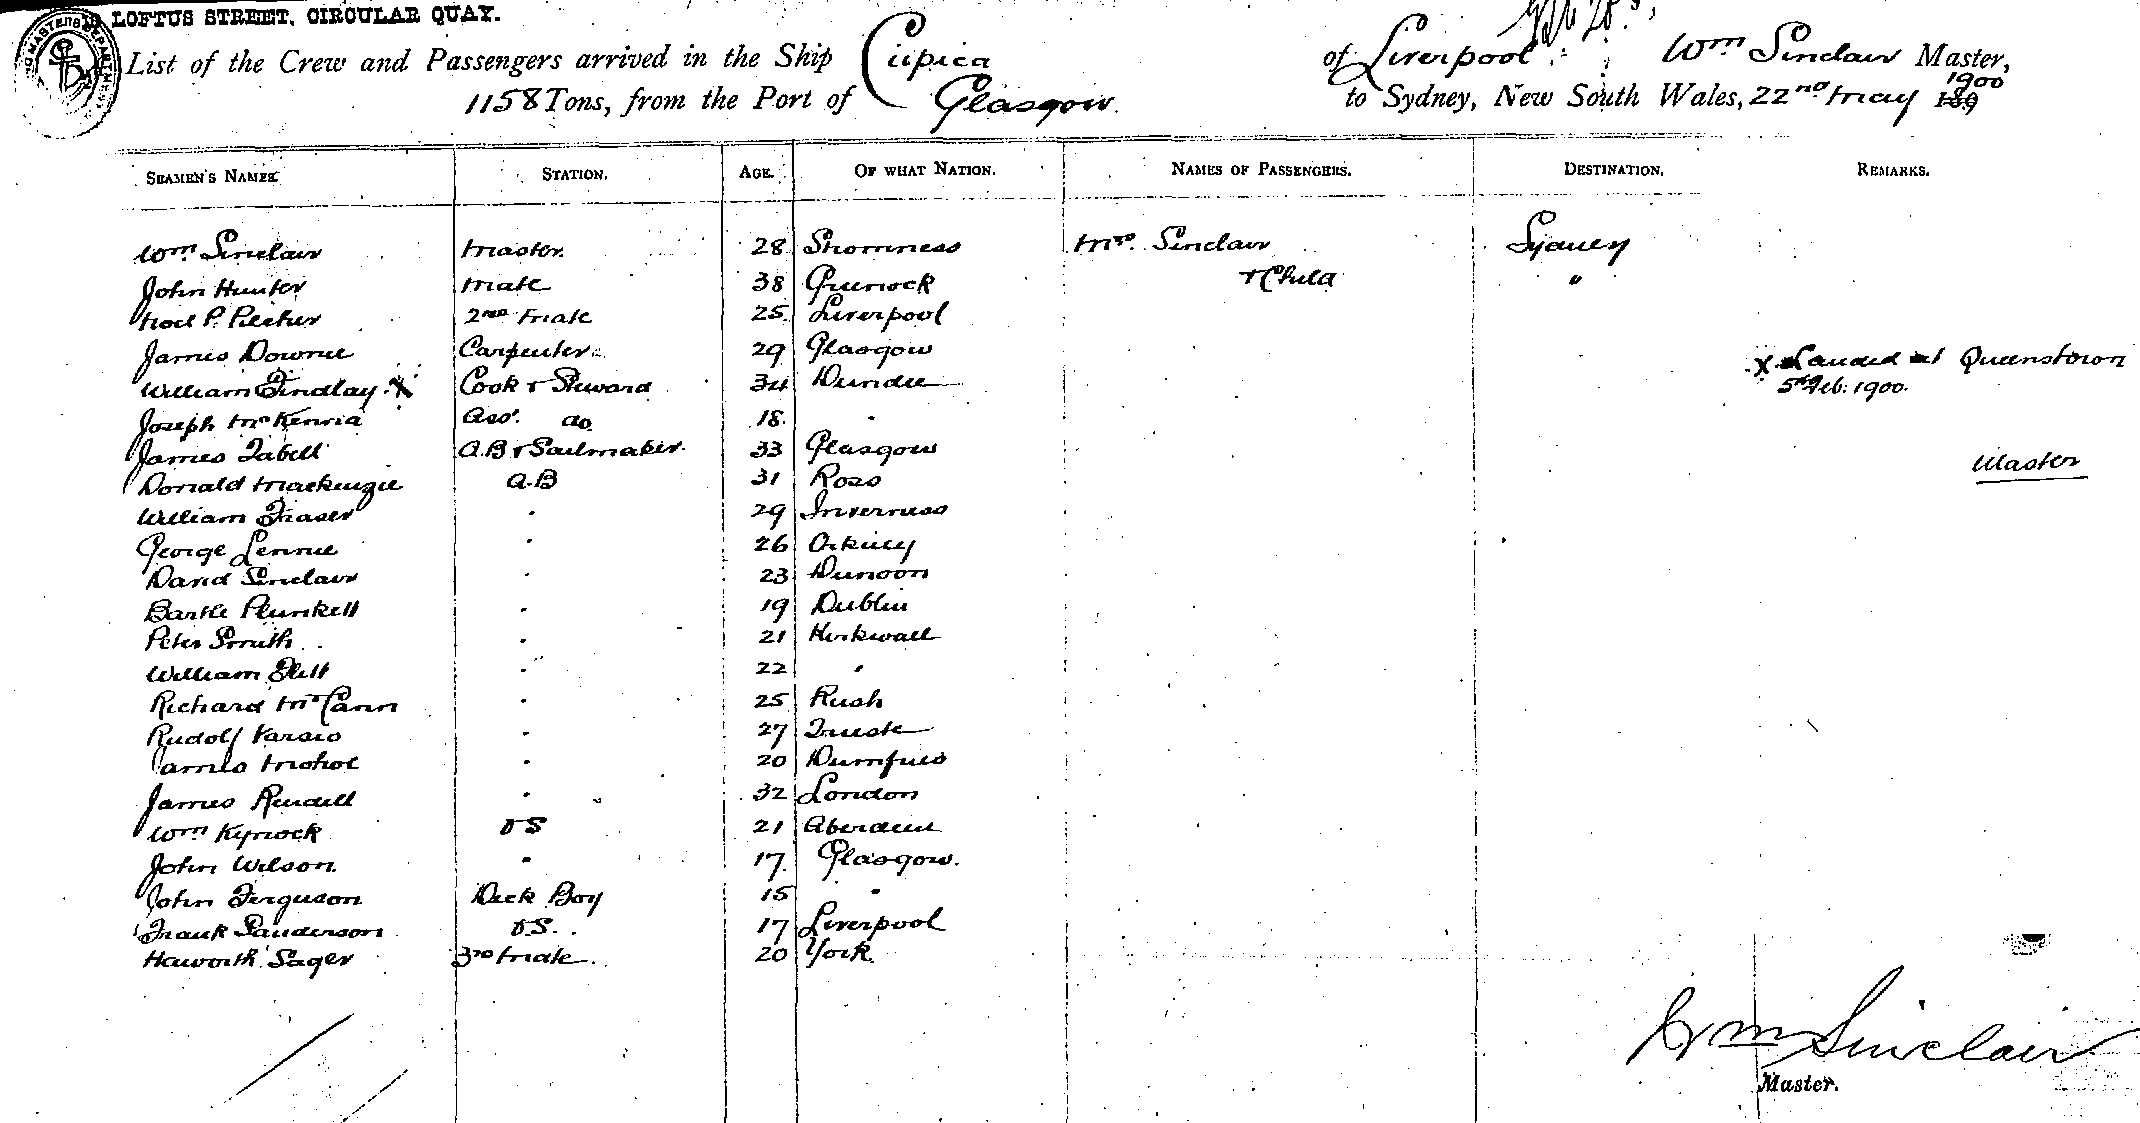 LOFTUS STREET, CIRCULAR QUAY.
List of the Crew and Passengers arrived in the Ship Ciipica of Liverpool Wm Sinclair Master,
1158 Tons, from the Port of Glasgow. to Sydney, New South Wales, 22nd May 1900 189
SEAMEN'S NAMES STATION. AGE. OF WHAT NATION. NAMES OF PASSENGERS. DESTINATION. REMARKS.
Wm Sinclair Master 28 Stromness Mrs. Sinclair Sydney
John Hunter Mate 38 Greenock + Child "
Noel P. 2nd Mate 25 Liverpool
James Downie Carpenter 29 Glasgow X Landed at Queenstown
William Findlay X Cook + Steward 34 Dundee 5th Feb. 1900.
Joseph McKenna Asst. do 18 "
James Tabell A.B + Sailmaker 33 Glasgow Master
Donald Mackenzie A.B 31 Ross
William Fraser " 29 Inverness
George Lennie " 26 Orkney
David Sinclair " 23 Dunoon
Bartle Plunkett " 19 Dublin
Peter Smith " 21 Kirkwall
William Flett " 22 "
Richard McCann " 25 Rush
Rudolf " 27 Trieste
James " 20 Dumfries
James Rendell " 32 London
Wm Kynock OS 21 Aberdeen
John Wilson " 17 Glasgow.
John Ferguson Deck Boy 15 "
Frank Sanderson OS. 17 Liverpool
Haworth Sager 3rd Mate 20 York
Wm Sinclair
Master.